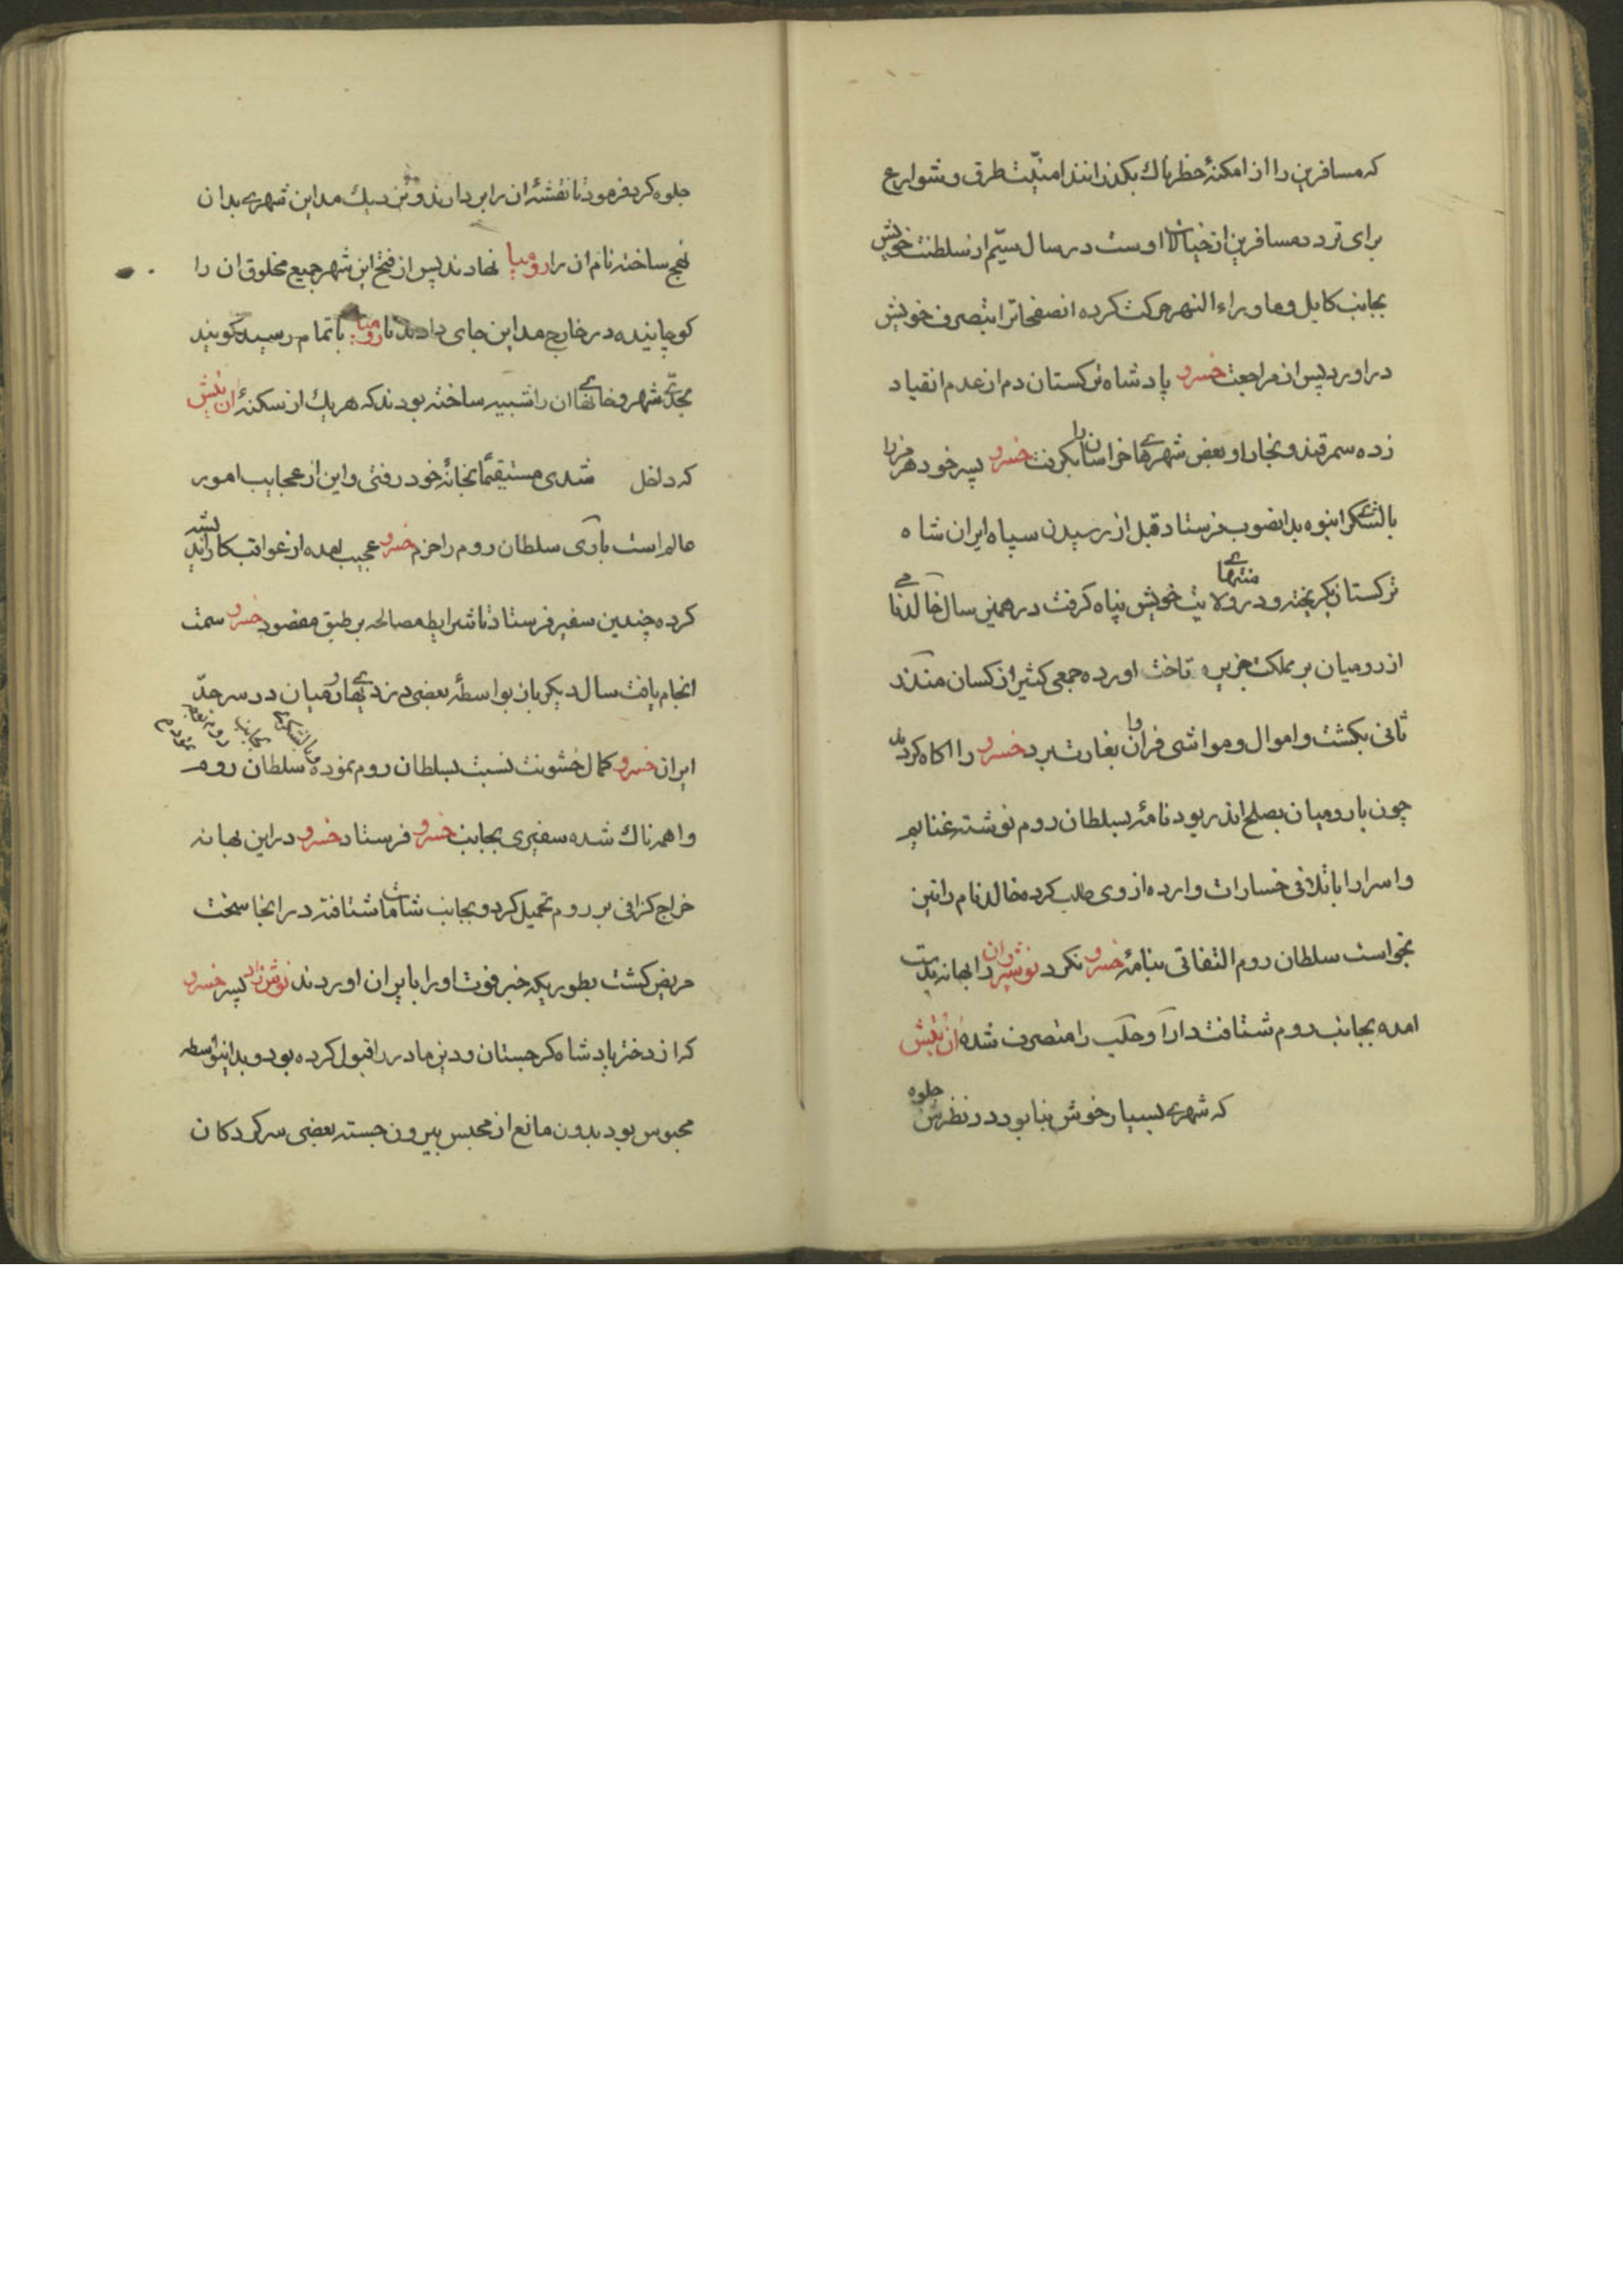 که مسافرین را از امکنهٔ خطرناک بکذرانند امنیّت طرق و شوارع
برای تردد مسافرین از خیالات اوست در سال سیّم از سلطنت خویش
بجانب کابل و ماوراء النهر حرکت کرده انصفحاترا بتصرف خویش
در اورد پس از مراجعت خسرو پادشاه ترکستان دم از عدم انقیاد
زده سمرقند و بخارا و بعض شهرهای خراسان را بکرفت خسرو پسر خود هرمز را
با لشکری انبوه بدانصوب فرستاد قبل از رسیدن سپاه ایران شاه
ترکستان بکریخته و در منتهای ولایت خویش پناه کرفت در همین سال خالد نامی
از رومیان بر مملکت جزیره تاخت اورده جمعی کثیر از کسان منذر
ثانی بکشت و اموال و مواشی فراوان بغارت ببرد خسرو را اکاه کردند
چون با رومیان بصلح اندر بود نامهٔ بسلطان روم نوشته غنایم
و اسرا را با تلافی خسارات وارده از وی طلب کرده خالد نام را نیز
بخواست سلطان روم التفاتی بنامهٔ خسرو نکرد نوشیروان را بهانه بدست
امده بجانب روم شتافت دارا و حلب را متصرف شده ان تیش
که شهری بسیار خوش بنا بود در نظرش جلوه
جلوه کرد فرمود تا نقشهٔ ان را بردارند و نزدیک مداین شهری بدان
نهج ساخته نام ان را رومیا نهادند پس از فتح این شهر جمیع مخلوق ان را
کوچانیده در خارج مداین جای دادند تا رومیا باتمام رسید کویند
بحدّی شهر و خانهای ان را شبیه ساخته بودند که هر یک از سکنهٔ ان تیش
که داخل شدی مستقیماً بخانهٔ خود رفتی و این از عجایب امور
عالم است باری سلطان روم را حزم خسرو عجیب امده از عواقب کار اندیشه
کرده چندین سفیر فرستاد تا شرایط مصالحه بر طبق مقصود خسرو سمت
انجام یافت سال دیکر باز بواسطهٔ بعضی دزدیهای رومیان در سر حدّ
ایران خسرو کمال خشونت نسبت بسلطان روم نموده با لشکری بجانب روم سلطان روم
واهمه ناک شده سفیری بجانب خسرو فرستاد خسرو در این بهانه
خراج کزافی بر روم تحمیل کرد و بجانب شامات شتافته در انجا سخت
مریض کشت بطوریکه خبر فوت او را بایران اوردند نوش زاد پسر خسرو
که از دختر پادشاه کرجستان و دین مادر را قبول کرده بود و بدانواسطه
محبوس بود بدون مانع از محبس بیرون جسته بعضی سرکردکان